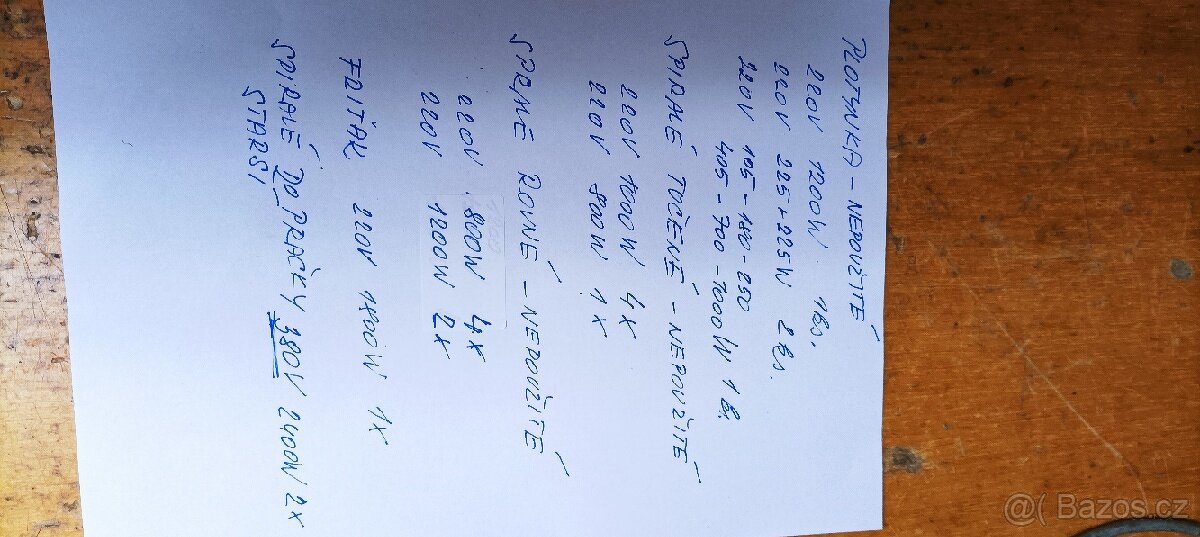 PLOTÝNKA - NEPOUŽITÉ
220V 1200W 1ks.
220V 225+225W 2ks.
220V 105-180-250
405-700-1000W 1k.
SPIRÁLÉ TOČENÉ - NEPOUŽITÉ
220V 1000W 4x
220V 800W 1x
SPIRÁLÉ ROVNÉ - NEPOUŽITÉ
220V 800W 4x
220V 1200W 2x
FRITÁK 220V 1800W 1x
SPIRÁLÉ DO PRAČKY 380V 2400W 2x
STARŠÍ
@( Bazos.cz